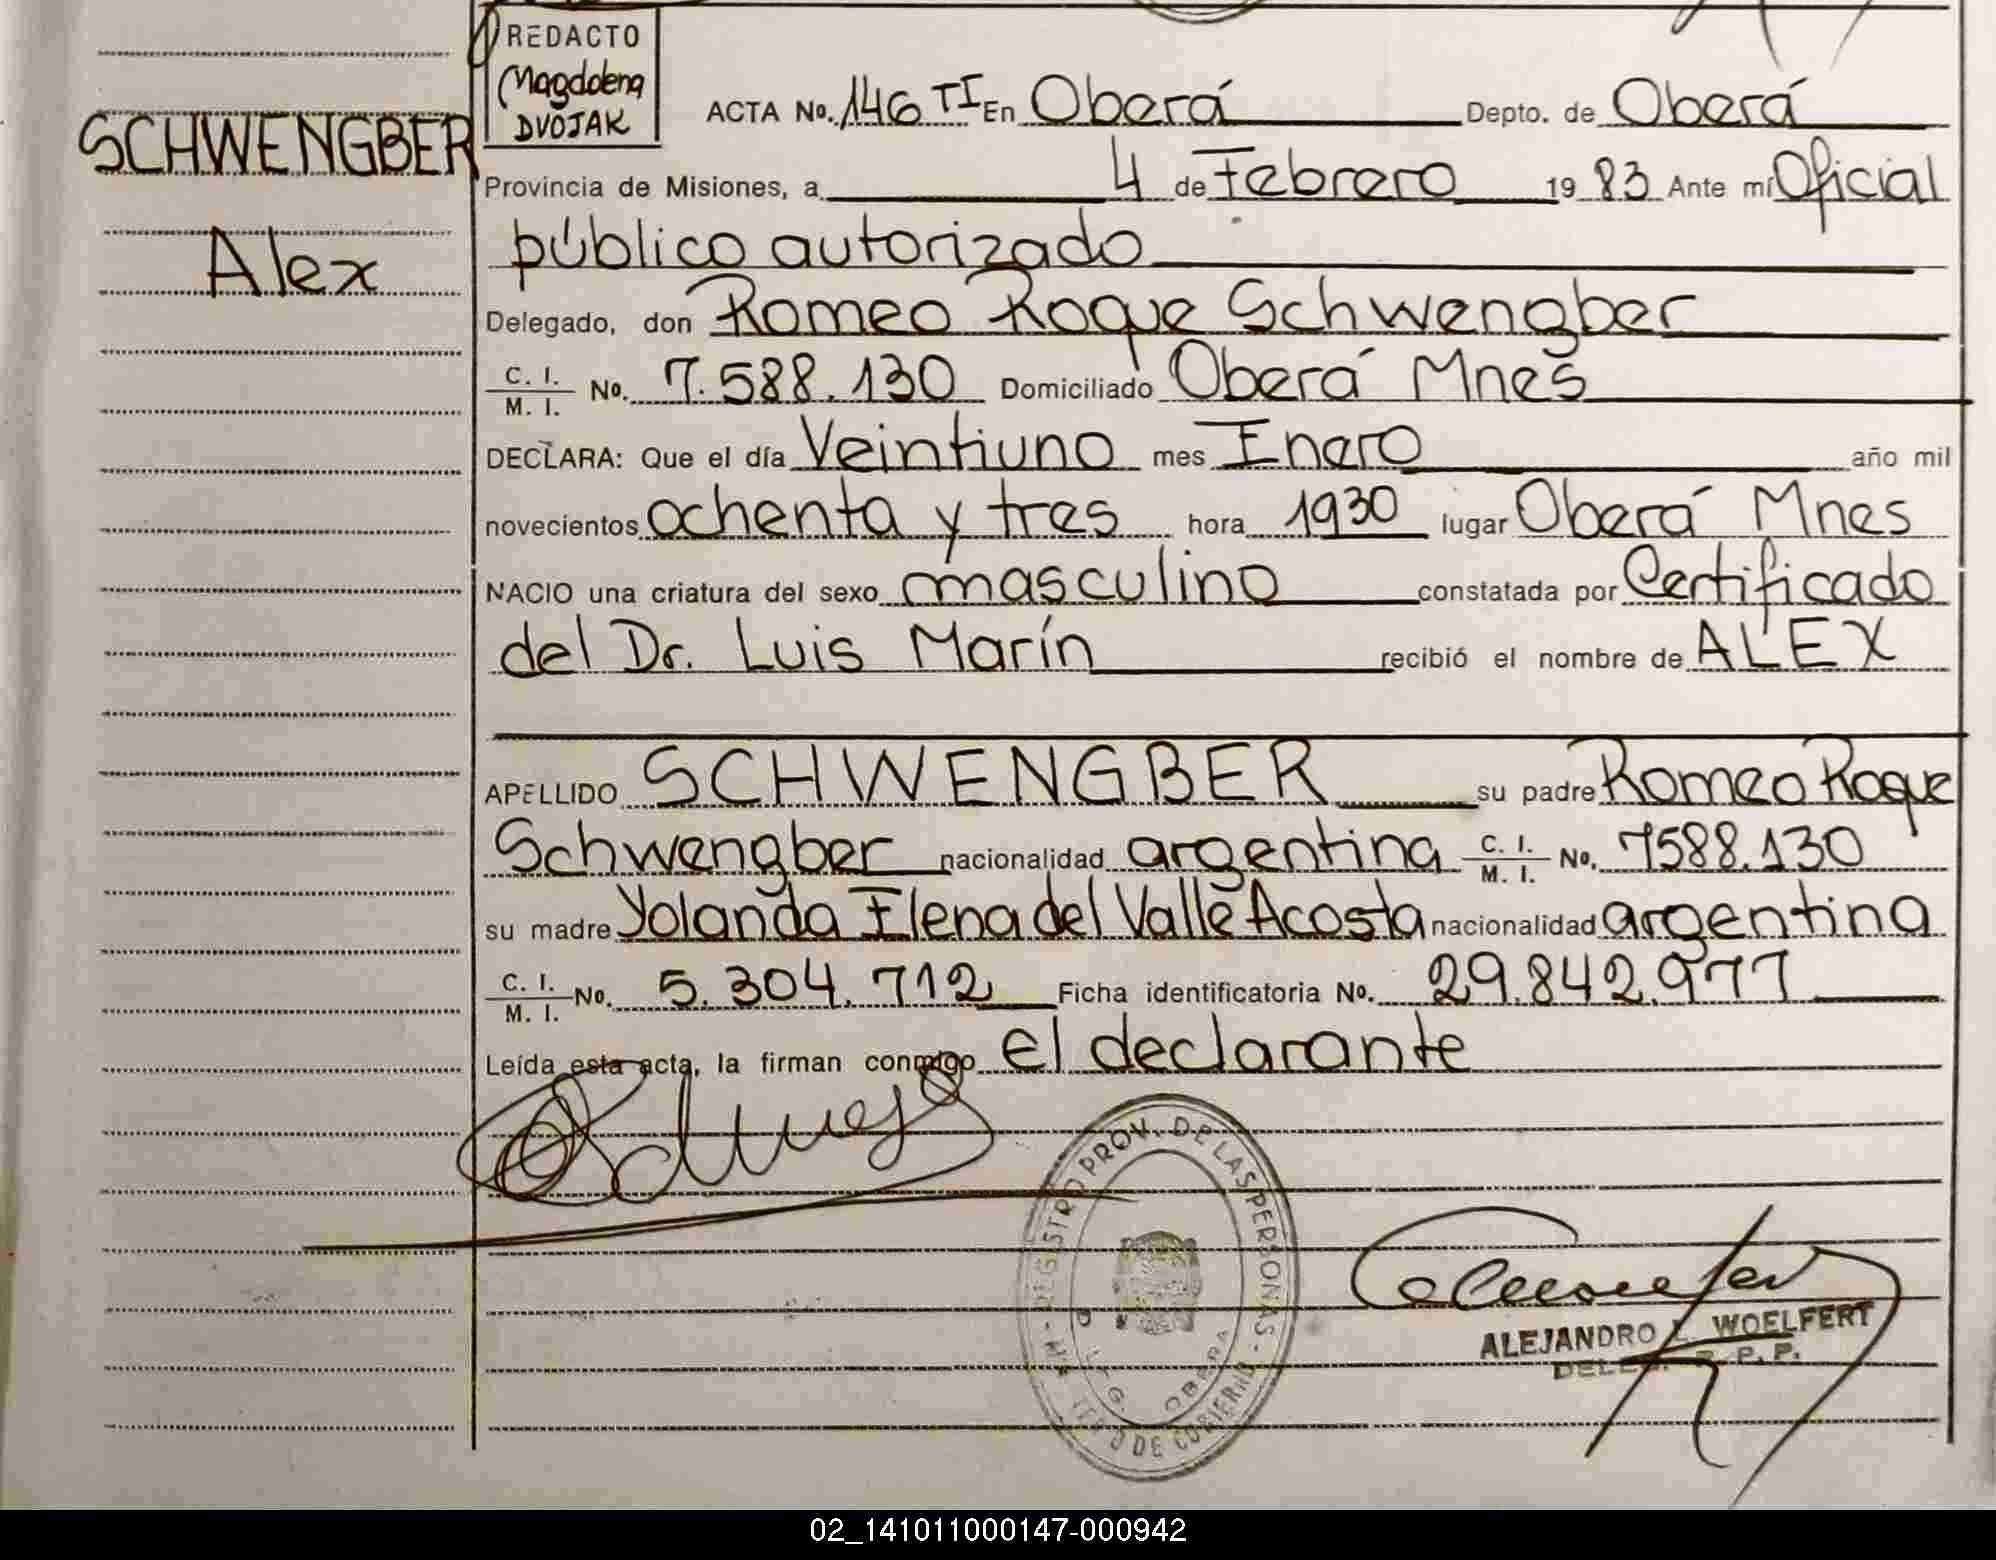 REDACTO
Magdalena
DVOJAK
SCHWENGBER
Alex
ACTA No. 146 TI En Oberá Depto. de Oberá
Provincia de Misiones, a 4 de Febrero 19 83 Ante mí Oficial
público autorizado
Delegado, don Romeo Roque Schwengber
C. I. / M. I. No. 7.588.130 Domiciliado Oberá Mnes
DECLARA: Que el día Veintiuno mes Enero año mil
novecientos ochenta y tres hora 1930 lugar Oberá Mnes
NACIO una criatura del sexo masculino constatada por Certificado
del Dr. Luis Marín recibió el nombre de ALEX
APELLIDO SCHWENGBER su padre Romeo Roque
Schwengber nacionalidad argentina C. I. / M. I. No. 7588.130
su madre Yolanda Elena del Valle Acosta nacionalidad argentina
C. I. / M. I. No. 5.304.712 Ficha identificatoria No. 29.842.977
Leída esta acta, la firman conmigo el declarante
REGISTRO PROV. DE LAS PERSONAS
DE GOBIERNO
OBERA
ALEJANDRO L. WOELFERT
02_141011000147-000942